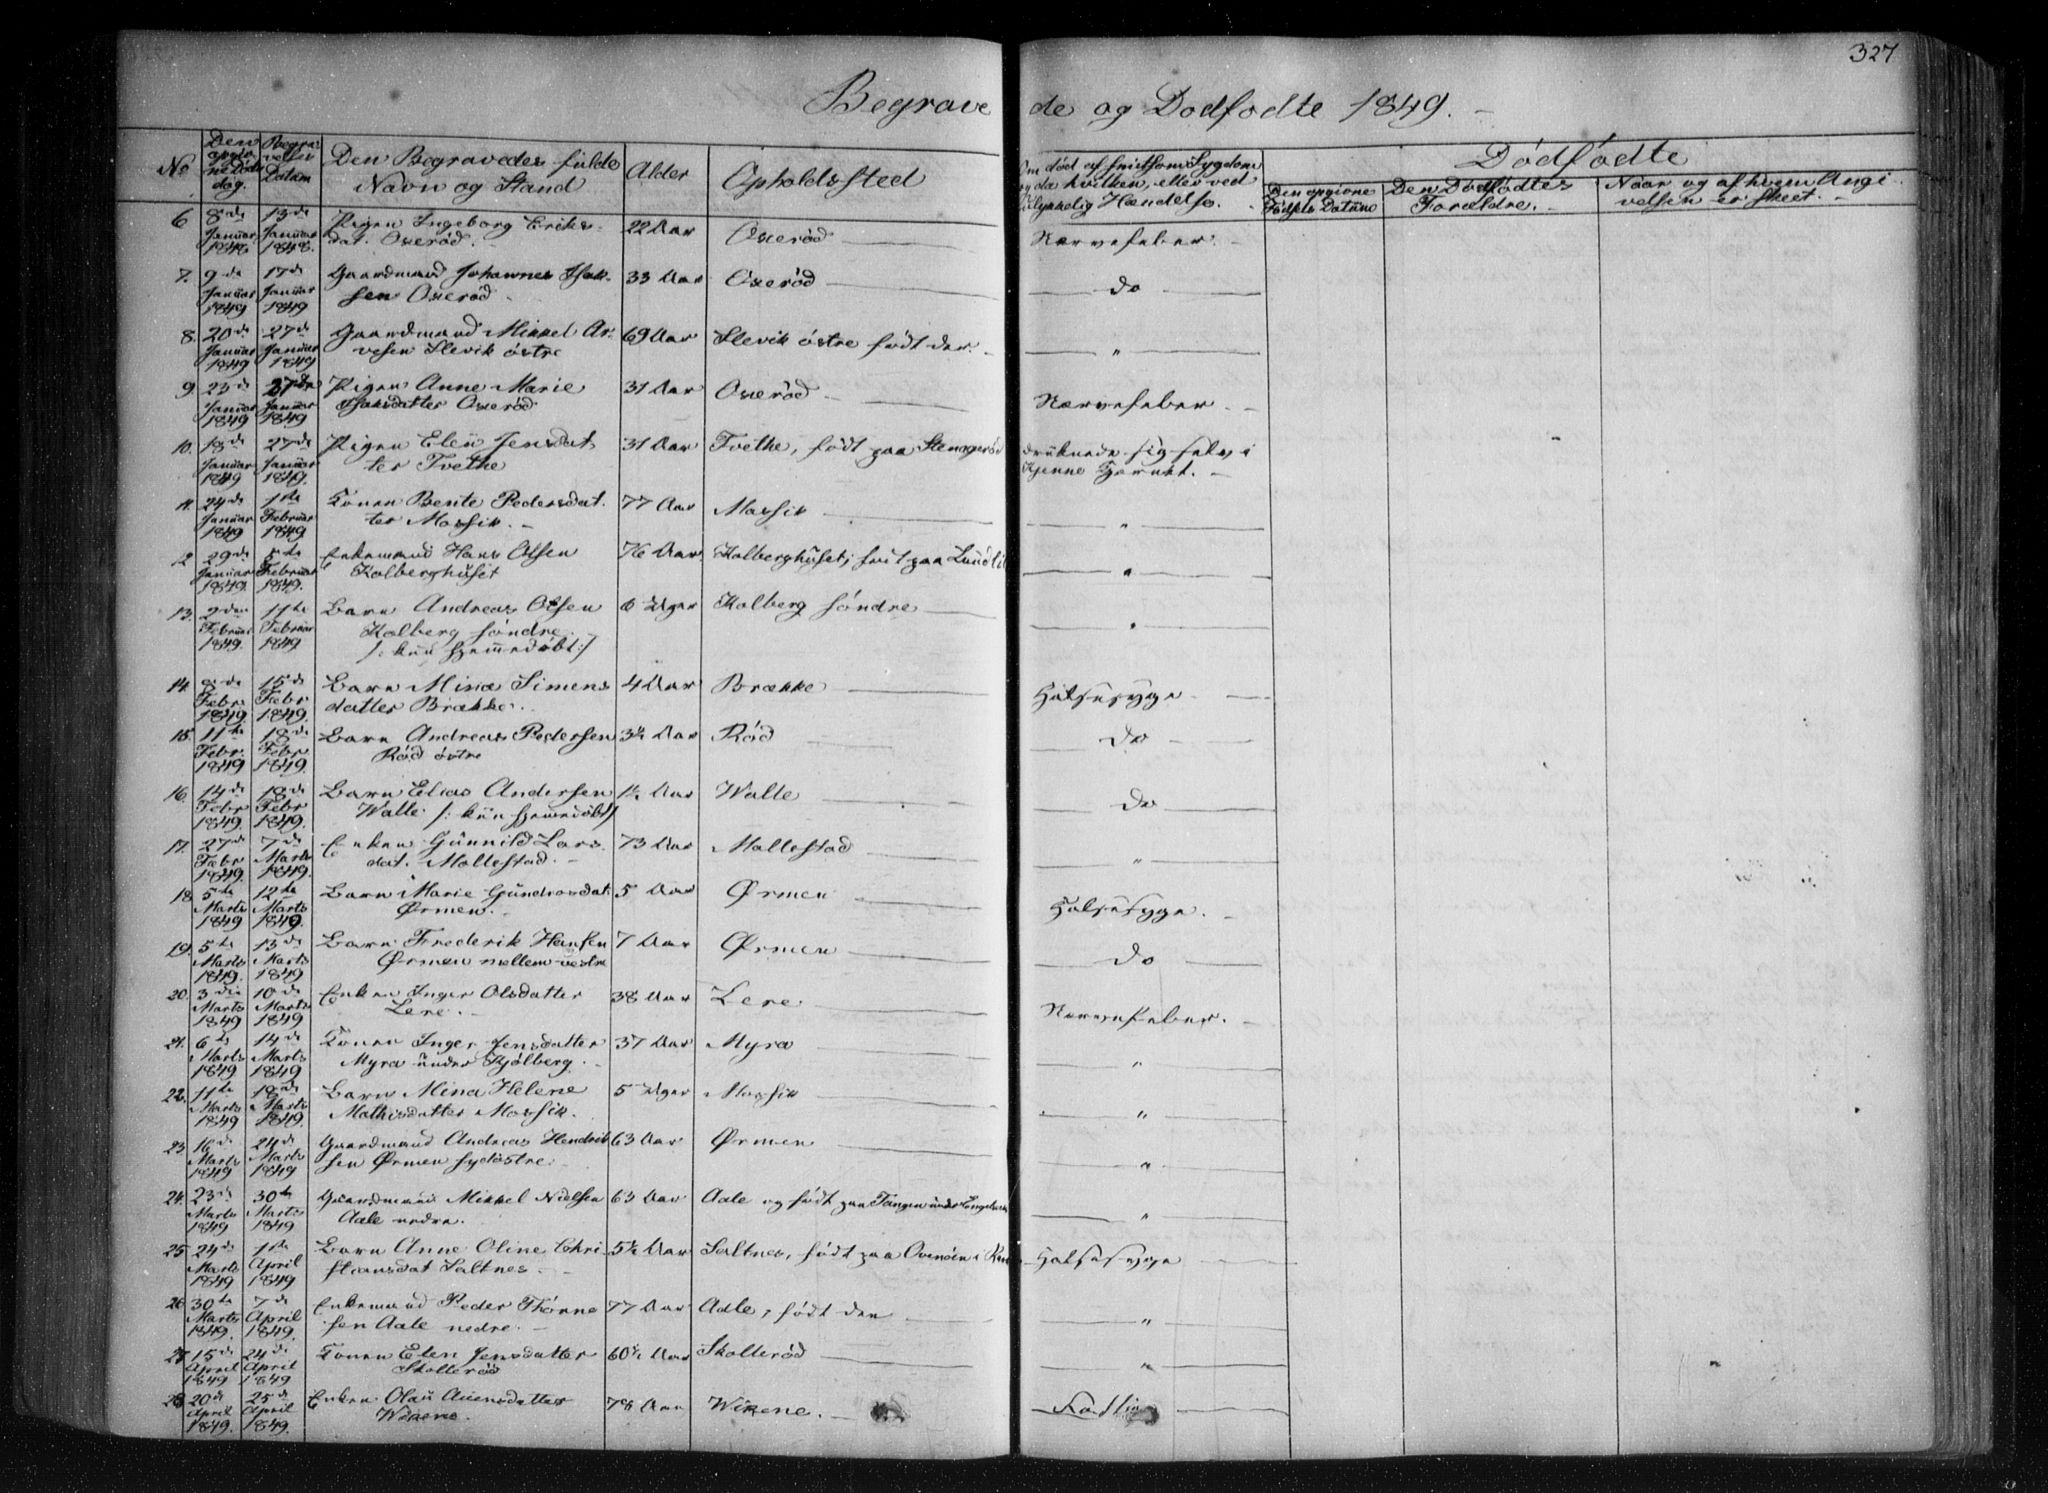 327
Begravede og Dodfodte 1849.
No
Den opgivne Døds dag.
Begravelses Datum
Den Begravedes fulde Navn og Stand
Alder
Opholdssted
Om død af smitsom Sygdom og da hvilken, eller ved ulykkelig Hændelse.
Dödfödte
Den opgivne Födsels Datum
Den Dödfödtes Forældre.
Naar og af hvem Angivelsen er skeet.
6 8de Januar 1848 13de Januar 1848. Pigen Ingeborg Eriksdat. Oxeröd. 22 Aar Oxeröd Nervefeber.
7. 9de Januar 1849 17de Januar 1849 Gaardmand Johannes Isaksen Oxeröd 33 Aar Oxeröd do
8. 20de Januar 1849 27de Januar 1849 Gaardmand Mikkel Arvesen Slevik östre 69 Aar Slevik östre födt der. "
9. 23de Januar 1849 27de Januar 1849 Pigen Anne Marie Isaksdatter Oxeröd 31 Aar Oxeröd Nervefeber.
10. 18de Januar 1849 27de Januar 1849. Pigen Eleu Jensdatter Tvethe 31 Aar Tvethe, födt paa druknede sig selv i Kjenne Tjernet.
11. 24de Januar 1849 1ste Februar 1849 Konen Bente Pedersdatter Mossik. 77 Aar Mossik "
12 29de Januar 1849. 5te Februar 1849. Enkemand Hans Olsen Kolberghuset 76 Aar Kolberghuset; födt paa "
13. 2den Februar 1849. 11te Februar 1849 Barn Andreas Olsen Kolberg söndre. /: kun hjemmedöbt :/ 6 Uger Kolberg söndre "
14. 8de Febr 1849. 15de Febr 1849. Barn Mina Simensdatter Brække. 4 Aar Brække Halsesyge
15. 11te Febr. 1849 18de Febr 1849. Barn Andreas Pedersen Röd östre 3½ Aar Röd do
16. 14de Febr 1849. 18de Febr 1849. Barn Elias Andersen Walle /: kun hjemedöbt :/ 1½ Aar Walle do
17. 27de Febr 1849. 7de Marts 1849. Enken Gunnild Larsdat. Mallestad. 73 Aar Mallestad "
18. 5te Marts 1849 12te Marts 1849. Barn Marie Gundrosdat. Ørmen. 5 Aar Ørmen Halsesyge.
19. 5te Marts 1849. 13de Marts 1849 Barn Frederik Hansen Ørmen mellem vestre 7 Aar Ørmen do
20. 3die Marts 1849 10de Marts 1849 Enken Inger Olsdatter Lere. 38 Aar Lere Nervefeber.
21. 6te Marts 1849 14de Marts 1849 Konen Inger Jensdatter Myra under Kjölberg. 37 Aar Myra "
22. 11te Marts 1849 18de Marts 1849. Barn Mina Helene Mathisdatter Mossik. 5 Uger Mossik "
23. 16de Marts 1849 24de Marts 1849 Gaardmand Andreas Hendriksen Ørmen sydöstre. 63 Aar Ørmen "
24. 23de Marts 1849 30te Marts 1849 Gaardmand Mikkel Nielsen Aale nedre. 63 Aar Aale og födt paa Tangen under "
25 24de Marts 1849 1ste April 1849 Barn Anne Oline Christiansdat Saltnes. 5½ Aar Saltnes, födt paa Halsesyge
26 30te Marts 1849. 7de April 1849. Enkemand Peder Thörnesen Aale nedre. 77 Aar Aale, födt der "
27 15de April 1849 24de April 1849 Konen Elen Jensdatter Skolleröd 60½ Aar Skolleröd "
28 20de April 1849. 25de April 1849. Enken Olau Auensdatter Wikene. 78 Aar Wikene.